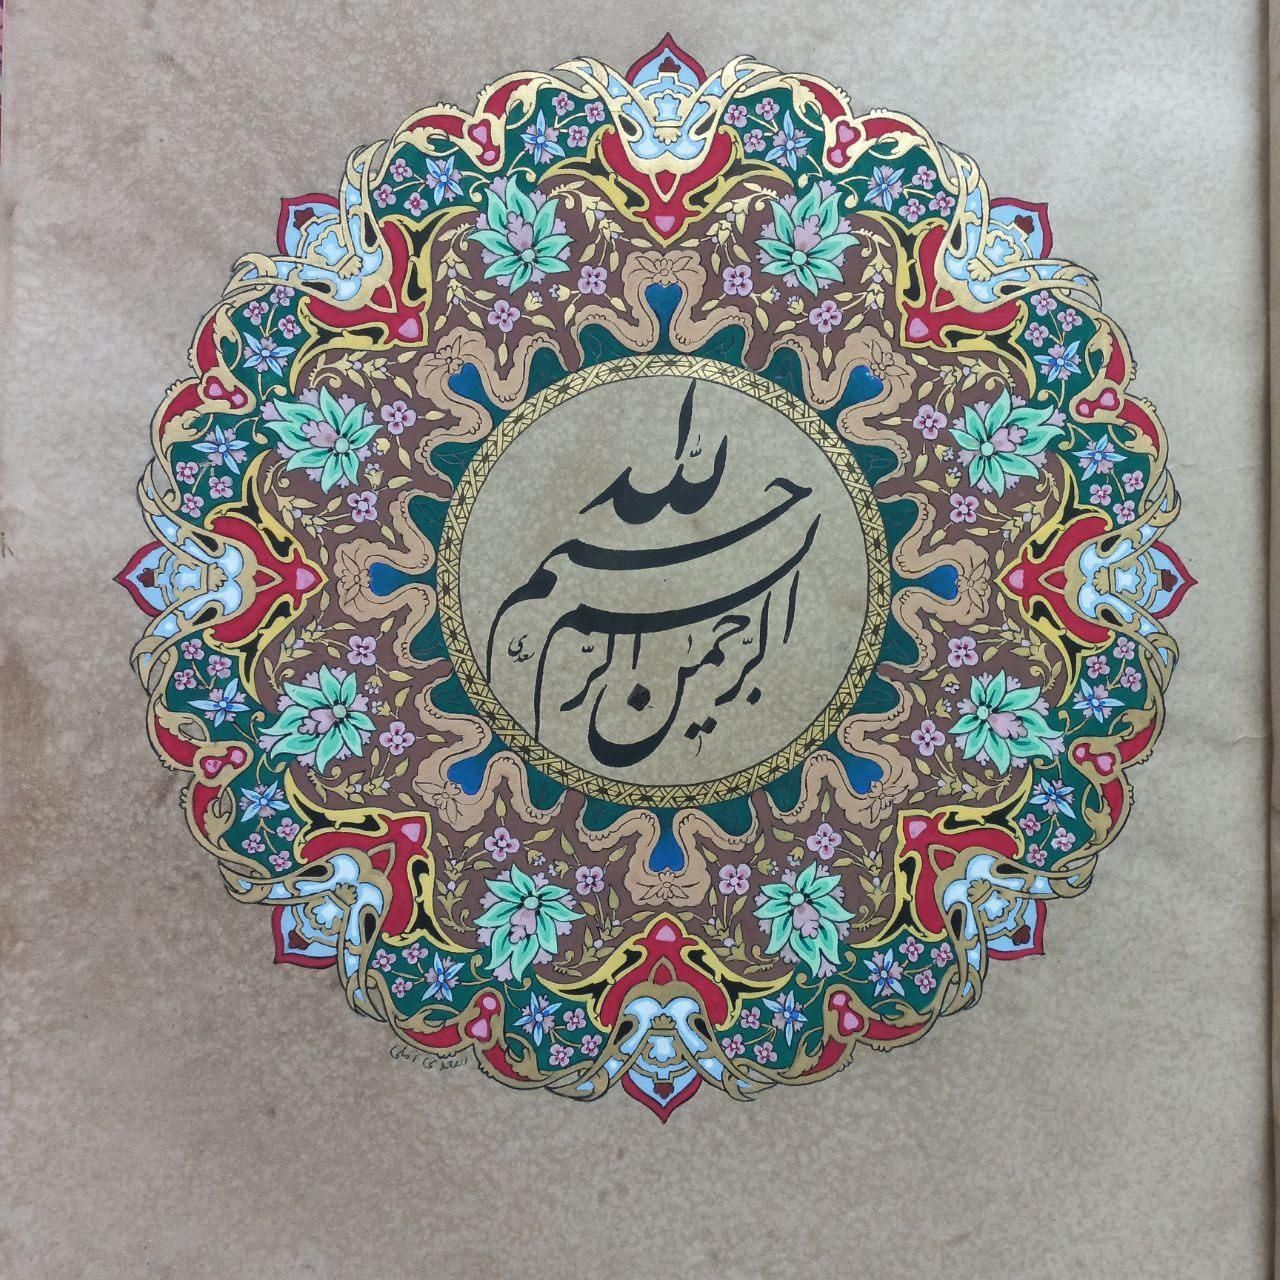 بسم الله الرحمن الرحیم
سعدی